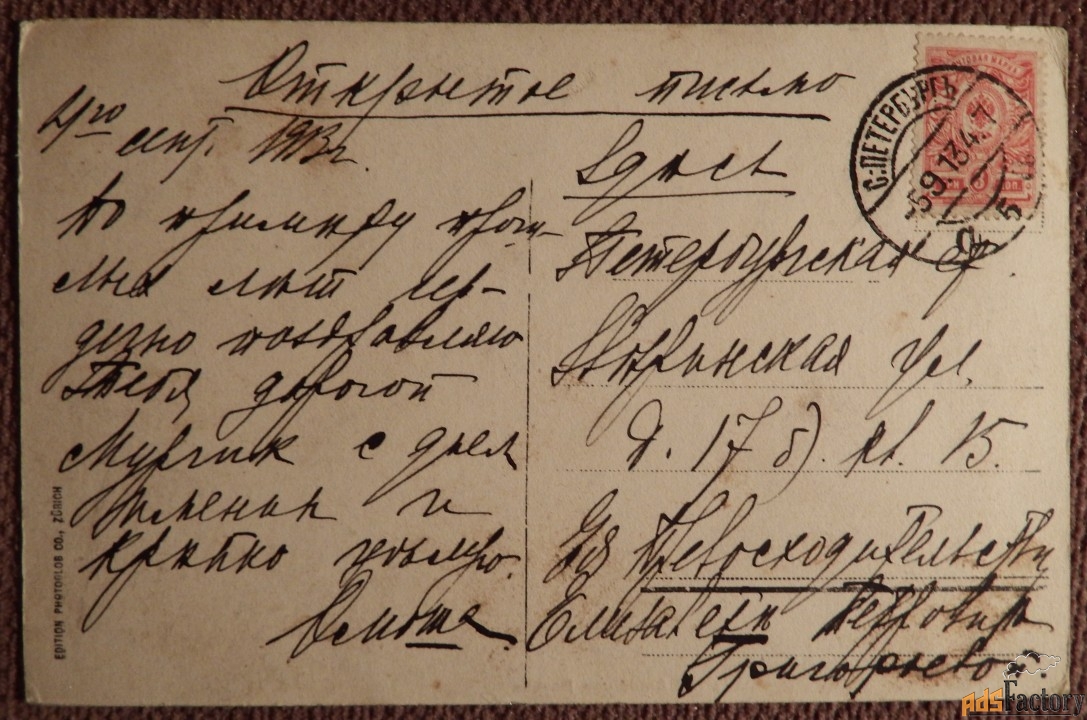 Открытое письмо
4го сент. 1913 г.
Здесь
По примеру прош-
лых лет сер-
дечно поздравляю
Тебя дорогой
Мурзик с днем
именин и
крепко целую.
Петербургская ст.
ул.
д. 17 б). кв. 15.
Ея Превосходительству
Елизавете Петровне
Григорьевой
С.ПЕТЕРБУРГЪ
5 9 13 4
EDITION PHOTOGLOB CO., ZÜRICH
adsFactory